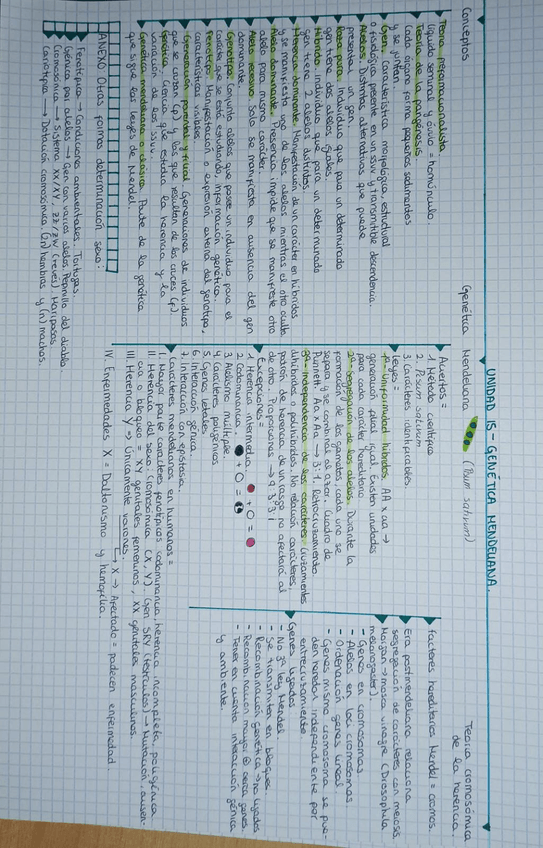 UNIDAD 15 - GENÉTICA MENDELIANA.
Conceptos
Teoría preformacionista:
líquido seminal y óvulo = homúnculo.
Teoría de la pangénesis:
Cada órgano forma pequeños sedimentos
y se juntan.
Gen: Característica morfológica, estructural
o fisiológica presente en un ssvv y transmitible descendencia.
Alelos: Distintas alternativas que puede
presentar un gen.
Raza pura: individuo que para un determinado
gen tiene dos alelos iguales.
Híbrido: individuo que para un determinado
gen tiene 2 alelos distintos.
Herencia dominante: Manifestación de un carácter en híbridos
y se manifiesta uno de los alelos mientras el otro oculta.
Alelo dominante: Presencia, impide que se manifieste otro
alelo para mismo carácter.
Alelo recesivo: Solo se manifiesta en ausencia del gen
dominante.
Genotipo: Conjunto alelos que posee un individuo para el
carácter que se está estudiando, información genética.
Fenotipo: Manifestación o expresión externa del genotipo,
características visibles.
Generación parental y filial: Generaciones de individuos
que se cruzan (P) y los que resultan de los cruces (F).
Genética: Ciencia que estudia la herencia y la
variación de los ssvv.
Genética mendeliana o clásica: Parte de la genética
que sigue las leyes de Mendel.
ANEXO Otras formas determinación sexo:
Fenotípica → Condiciones ambientales. Tortugas.
Génica por alelos → Gen con varios alelos. Pepinillo del diablo.
Cromosómica → Sistema XX/XY, ZZ/ZW (revés) Mariposas
Cariotípica → Dotación cromosómica (2n) hembras y (n) machos.
Genética Mendeliana (Pisum sativum)
Aciertos =
1. Método científico
2. Pisum sativum
3. Caracteres identificables
Leyes =
1ª- Uniformidad híbridos. AA x aa →
generación filial igual. Existen unidades
para cada carácter hereditario
2ª- Segregación de los alelos. Durante la
formación de los gametos, cada uno se
separa y se combinan al azar. Cuadro de
Punnett. Aa x Aa → 3:1. Retrocruzamiento
3ª- Independencia de los caracteres. Cruzamientos
dihíbridos o polihíbridos. No relación caracteres;
patrón de herencia de un rasgo no afectará al
de otro. Proporciones → 9:3:3:1
Excepciones =
1. Herencia intermedia: + O =
2. Codominancia: + O =
3. Alelismo múltiple.
4. Caracteres poligénicos
5. Genes letales
6. Interacción génica.
7. Interacción con epistasia.
Caracteres mendelianos en humanos =
I. Mayor parte caracteres fenotípicos codominancia, herencia incompleta, poligénica
II. Herencia del sexo: Cromosómica (X, Y). Gen SRY (testículos) → Mutación, ausen-
cia o bloqueo = XY genitales femeninos, XX genitales masculinos.
III. Herencia Y → Únicamente varones.
x → Afectado = padecen enfermedad.
IV. Enfermedades X = Daltonismo y hemofilia.
Teoría cromosómica
de la herencia.
Factores hereditarios Mendel = cromos.
Era postmendeliana relaciona
segregación de caracteres con meiosis.
Morgan → mosca vinagre (Drosophila
melanogaster).
- Genes en cromosomas
- Alelos en loci cromosomas
- Ordenación genes lineal.
- Genes mismo cromosoma se pue-
den heredar independiente por
entrecruzamiento
Genes ligados
- No 3ª ley Mendel
- Se transmiten en bloques.
- Recombinación genética → no ligados
- Recombinación mayor cerca genes.
- Tener en cuenta interacción génica
y ambiente.